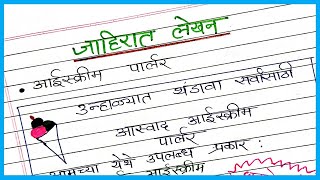 जाहिरात लेखन
• आईस्क्रीम पार्लर
उन्हाळ्यात थंडावा सर्वांसाठी
आस्वाद आईस्क्रीम
पार्लर
आमच्या येथे उपलब्ध प्रकार :
आईस्क्रीम